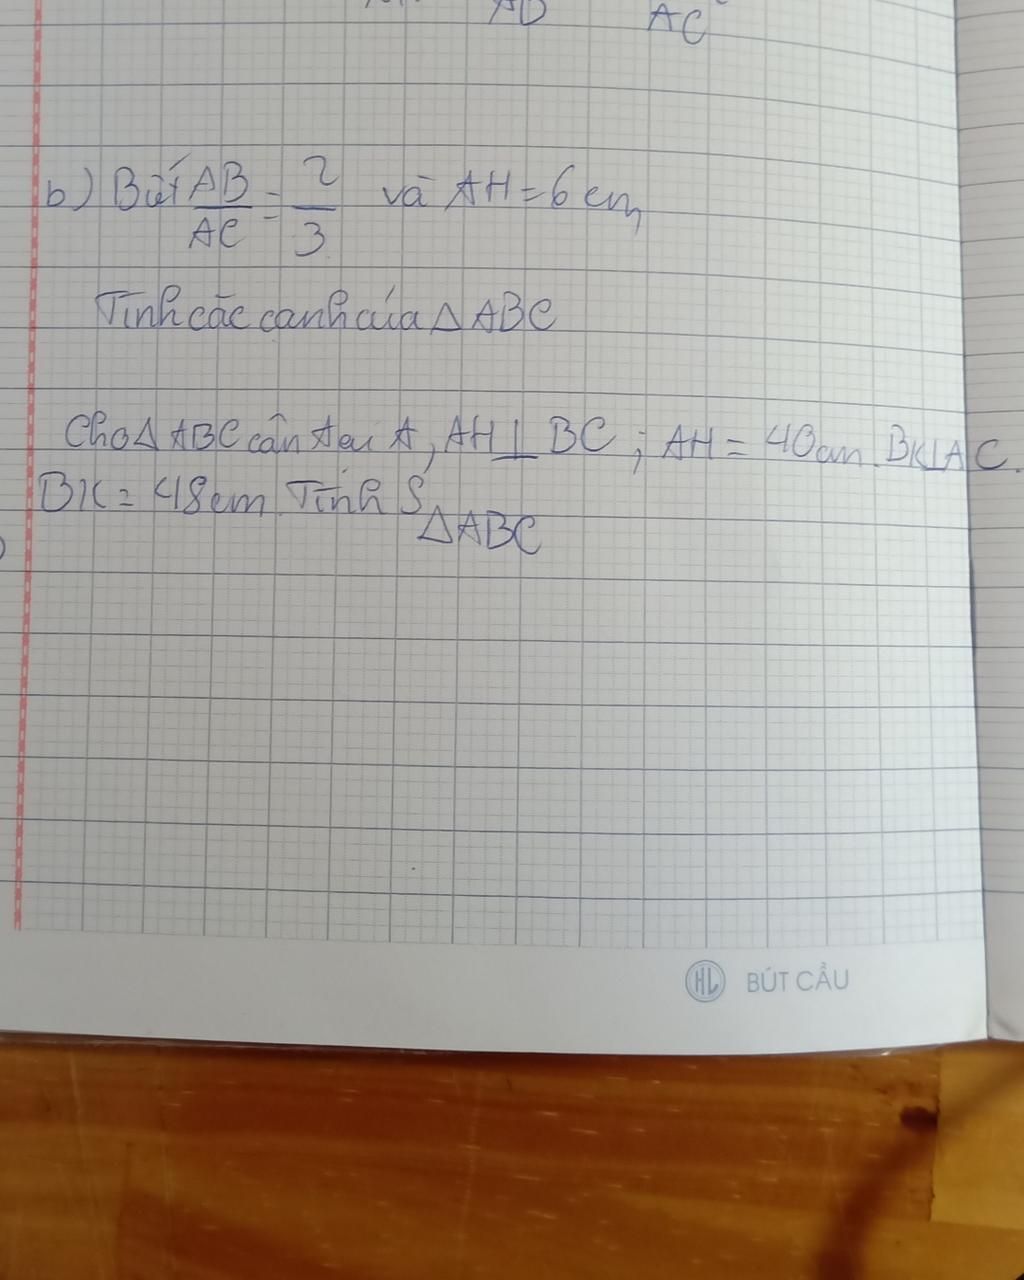 AD AC
b) Biết AB/AC = 2/3 và AH = 6 cm
Tính các cạnh của Δ ABC
Cho Δ ABC cân tại A, AH ⊥ BC ; AH = 40cm BK⊥AC.
BK = 48cm Tính S ΔABC
HL BÚT CẦU